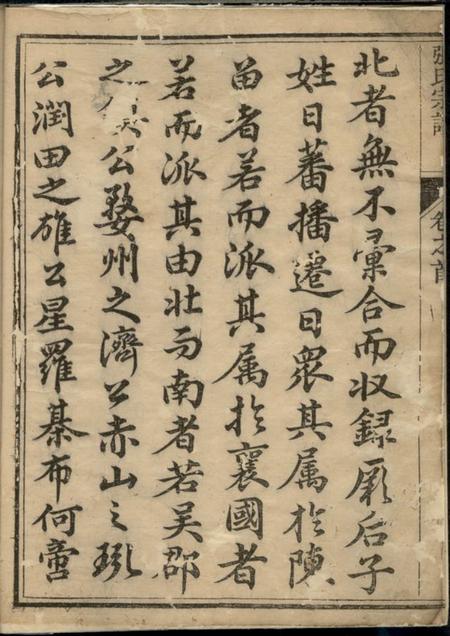 張氏宗譜 卷之首
北者無不彙合而収録厥后子
姓日蕃播遷日衆其属於陳
畄者若而派其属於襄國者
若而派其由北而南者若吴郡
之公婺州之濟公赤山之
公潤田之雄公星羅棊布何啻